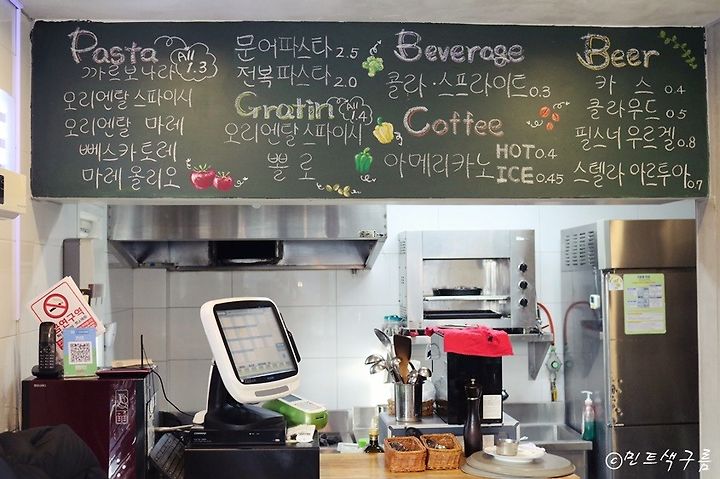 Pasta All 1.3
까르보나라
오리엔탈 스파이시
오리엔탈 마레
뻬스카토레
마레 올리오
문어파스타 2.5
전복파스타 2.0
Gratin All 1.4
오리엔탈 스파이시
뽈로
Beverage
콜라·스프라이트 0.3
Coffee
아메리카노 HOT 0.4
ICE 0.45
Beer
카스 0.4
클라우드 0.5
필스너우르겔 0.8
스텔라아르투아 0.7
금연구역
©민트색구름